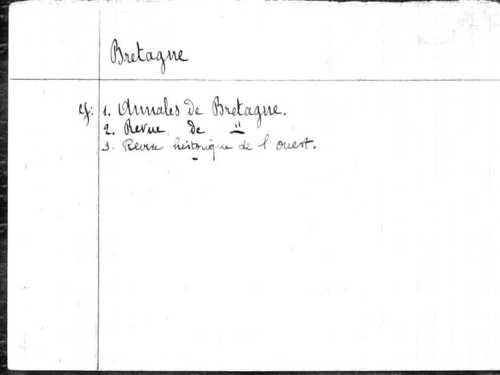 Bretagne
cf: 1. Annales de Bretagne.
2. Revue de "
3. Revue historique de l'ouest.